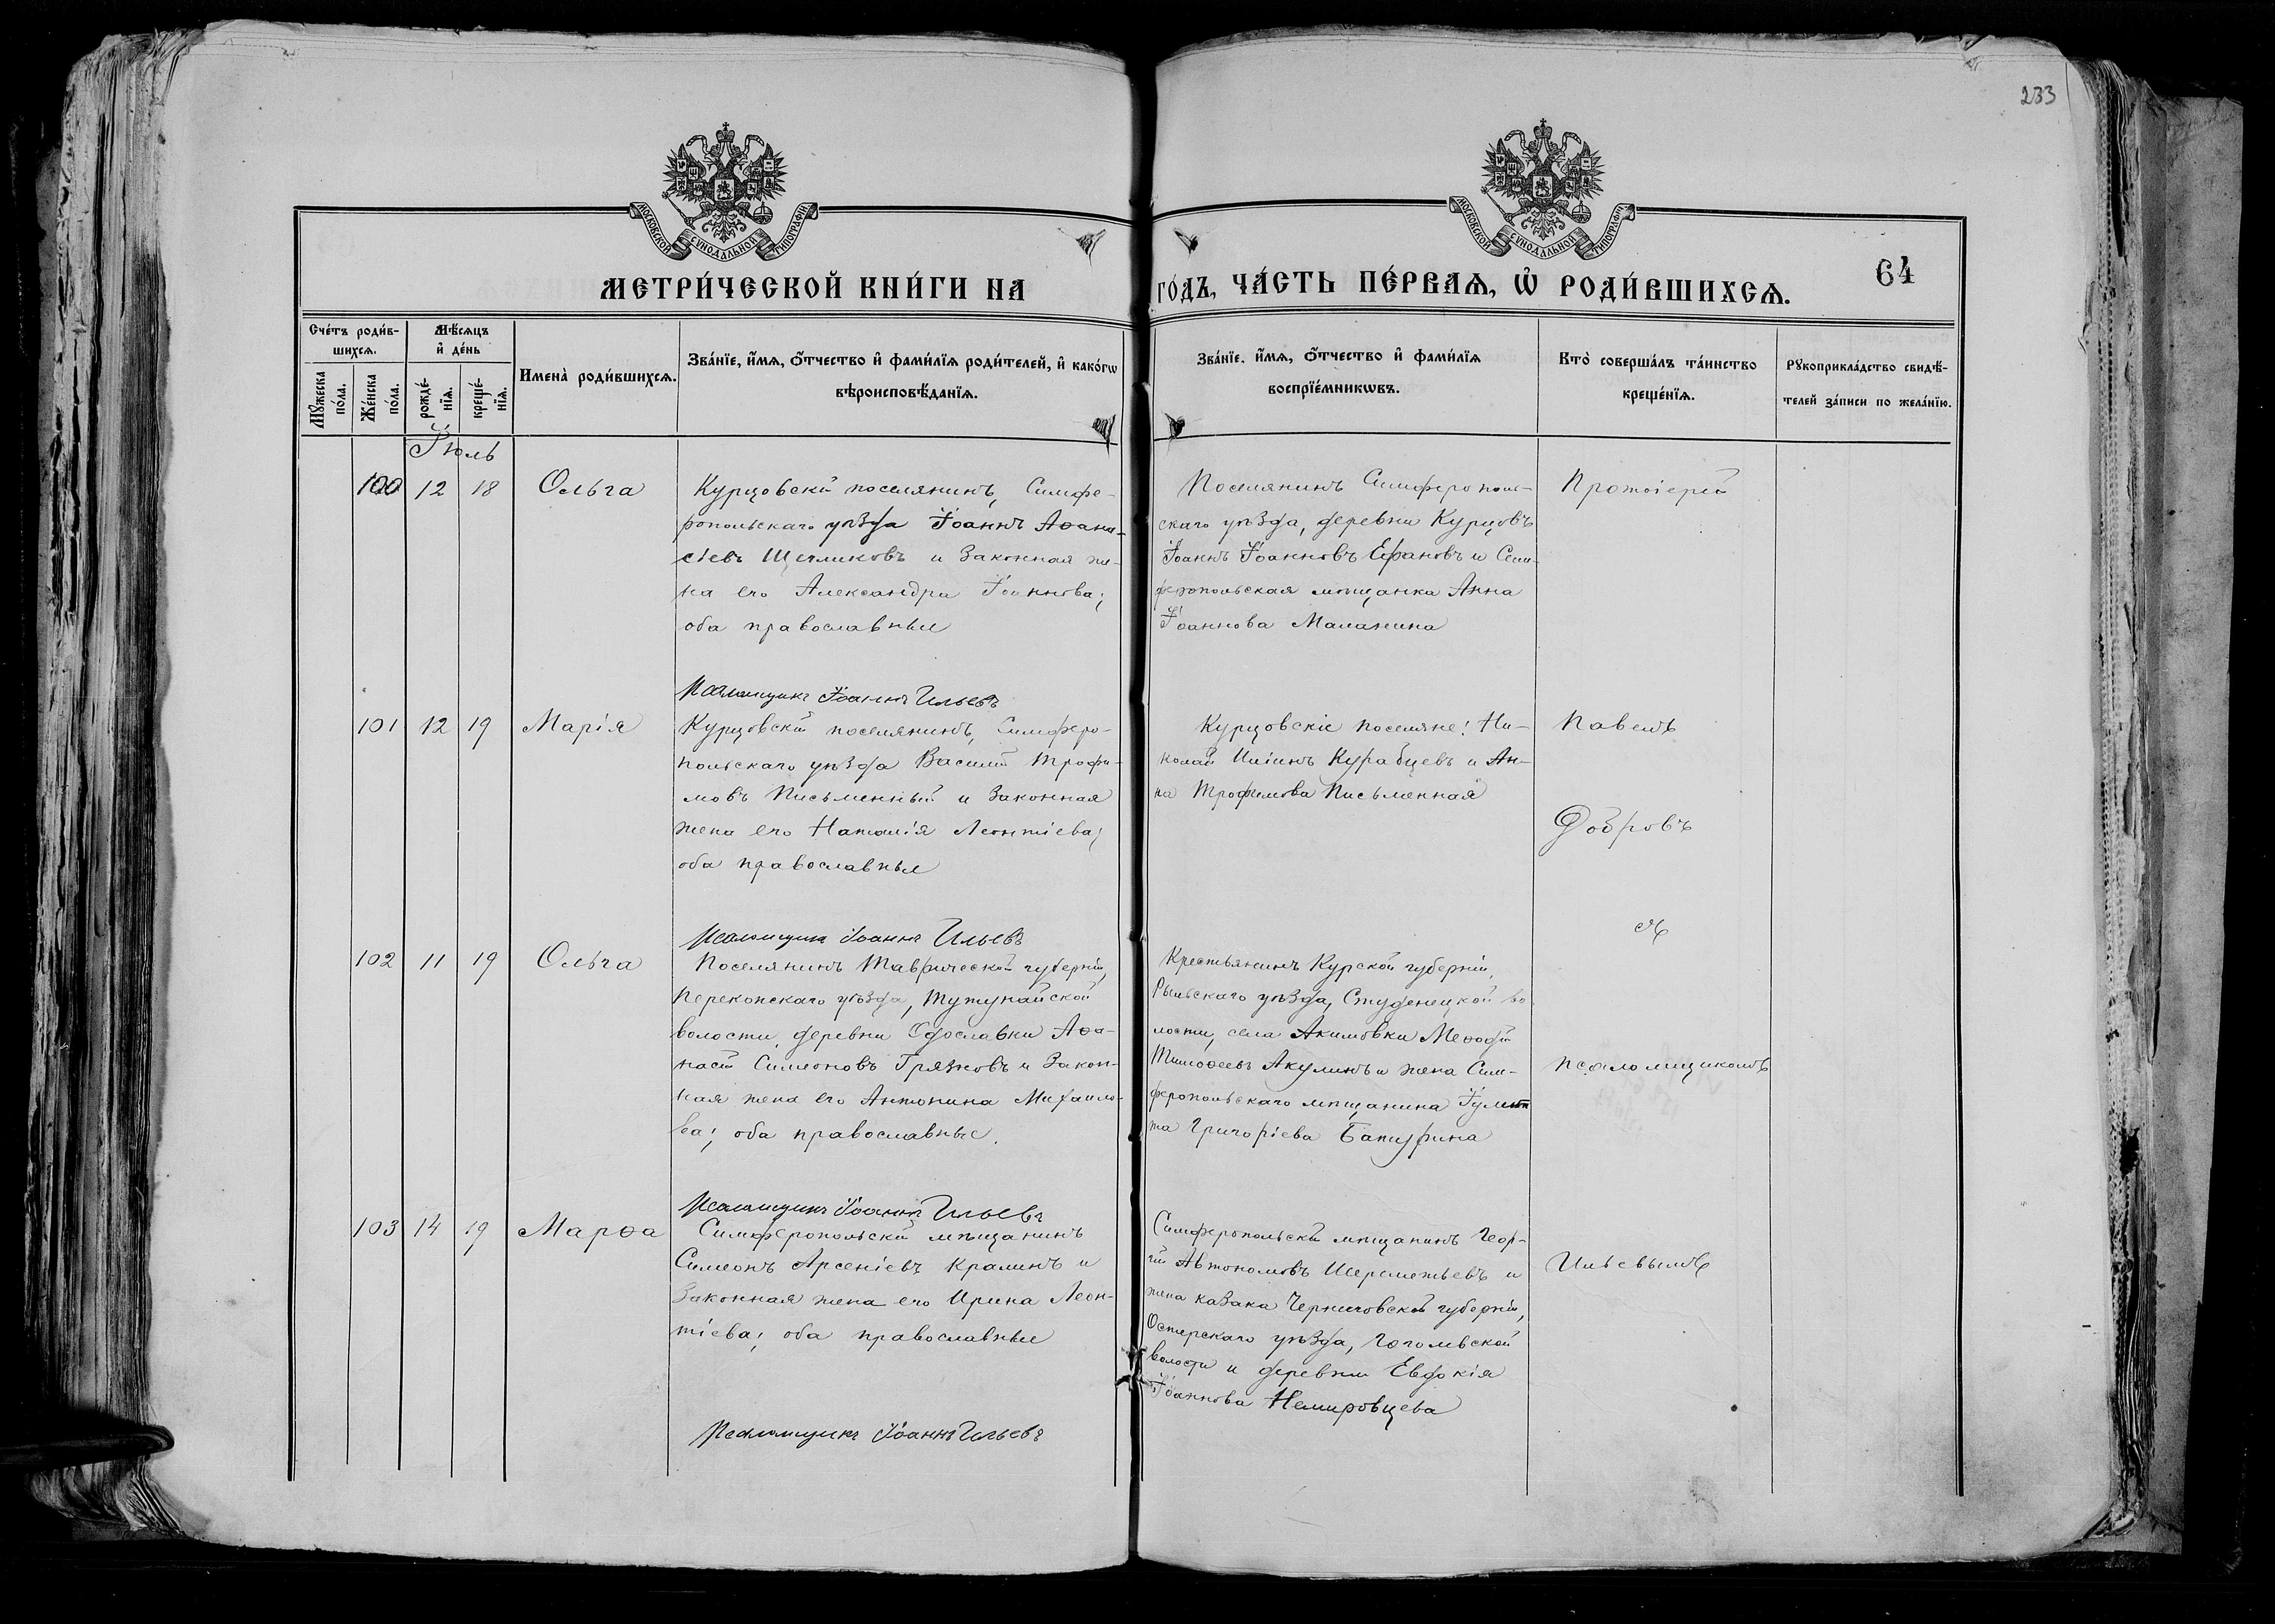 233
МОСКОВСКОЙ СѴНОДАЛЬНОЙ ТИПОГРАФІИ
МОСКОВСКОЙ СѴНОДАЛЬНОЙ ТИПОГРАФІИ
МЕТРИ́ЧЕСКОЙ КНИ́ГИ НА
ГО́ДЪ, ЧА́СТЬ ПЕ́РВАѦ, Ѡ҆ РОДИ́ВШИХСѦ.
64
Сче́тъ роди́в-
шихсѧ.
Мꙋ́жеска по́ла.
Же́нска по́ла.
Мѣ́сѧцъ
и҆ де́нь
рожде́-
нїѧ.
креще́-
нїѧ.
Имена̀ роди́вшихсѧ.
Зва́нїе, и҆́мѧ, ѻ҆́тчество и҆ фами́лїѧ роди́телей, и҆ како́гѡ
вѣроисповѣ́данїѧ.
Зва́нїе, и҆́мѧ, ѻ҆́тчество и҆ фами́лїѧ
воспрїе́мникѡвъ.
Кто̀ соверша́лъ та́инство
креще́нїѧ.
Рꙋкоприкла́дство свидѣ́-
телей за́писи по жела́нїю.
Іюль
100 12 18 Ольга
Курцовскій поселянинъ, Симфе-
ропольскаго уѣзда Іоаннъ Аѳана-
сіевъ Щегликовъ и законная же-
на его Александра Іоаннова;
оба православные
Псаломщикъ Іоаннъ Ильевъ
Поселянинъ Симферополь-
скаго уѣзда, деревни Курцовъ
Іоаннъ Іоанновъ Ефановъ и Сим-
феропольская мѣщанка Анна
Іоаннова Маланина
Протоіерей
101 12 19 Марія
Курцовскій поселянинъ, Симферо-
польскаго уѣзда Василій Трофи-
мовъ Письменный и законная
жена его Наталія Леонтіева;
оба православные
Псаломщикъ Іоаннъ Ильевъ
Курцовскіе поселяне: Ни-
колай Иліинъ Курабцевъ и Ан-
на Трофимова Письменная
Павелъ
Добровъ
съ
102 11 19 Ольга
Поселянинъ Таврической губерніи,
Перекопскаго уѣзда, Тутунайской
волости, деревни Богославки Аѳа-
насій Симеоновъ Грязновъ и закон-
ная жена его Антонина Михаило-
ва; оба православные.
Псаломщикъ Іоаннъ Ильевъ
Крестьянинъ Курской губерніи,
Рыльскаго уѣзда, Студенецкой во-
лости, села Акимовки Меѳодій
Тимоѳеевъ Акулинъ и жена Сим-
феропольскаго мѣщанина Іулит-
та Григоріева Батурина
псаломщикомъ
103 14 19 Марѳа
Симферопольскій мѣщанинъ
Симеонъ Арсеніевъ Кралинъ и
законная жена его Ирина Леон-
тіева; оба православные
Псаломщикъ Іоаннъ Ильевъ
Симферопольскій мѣщанинъ Геор-
гій Автономовъ Шереметьевъ и
жена казака Черниговской губерніи,
Остерскаго уѣзда, Гогольвской
волости и деревни Евдокія
Іоаннова Немировцева
Ильевымъ